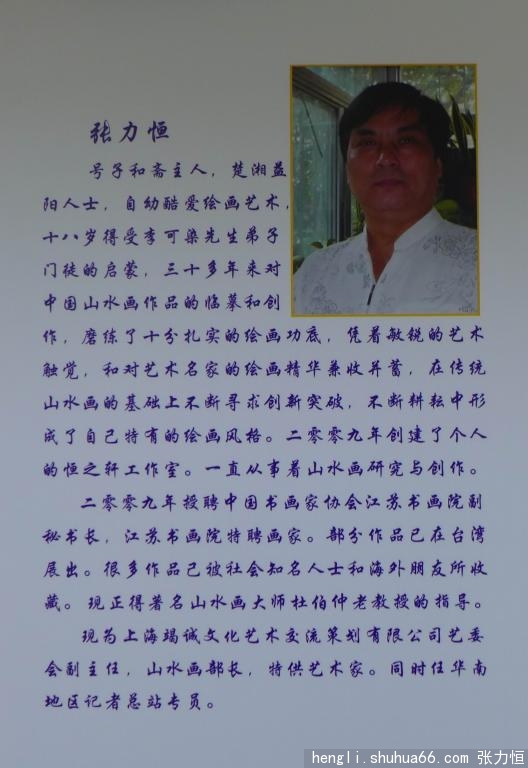 张力恒
号子和斋主人，楚湘益
阳人士，自幼酷爱绘画艺术，
十八岁得受李可染先生弟子
门徒的启蒙，三十多年来对
中国山水画作品的临摹和创
作，磨练了十分扎实的绘画功底，凭着敏锐的艺术
触觉，和对艺术名家的绘画精华兼收并蓄，在传统
山水画的基础上不断寻求创新突破，不断耕耘中形
成了自己特有的绘画风格。二零零九年创建了个人
的恒之轩工作室。一直从事着山水画研究与创作。
二零零九年授聘中国书画家协会江苏书画院副
秘书长，江苏书画院特聘画家。部分作品已在台湾
展出。很多作品已被社会知名人士和海外朋友所收
藏。现正得著名山水画大师杜伯仲老教授的指导。
现为上海竭诚文化艺术交流策划有限公司艺委
会副主任，山水画部长，特供艺术家。同时任华南
地区记者总站专员。
hengli.shuhua66.com 张力恒